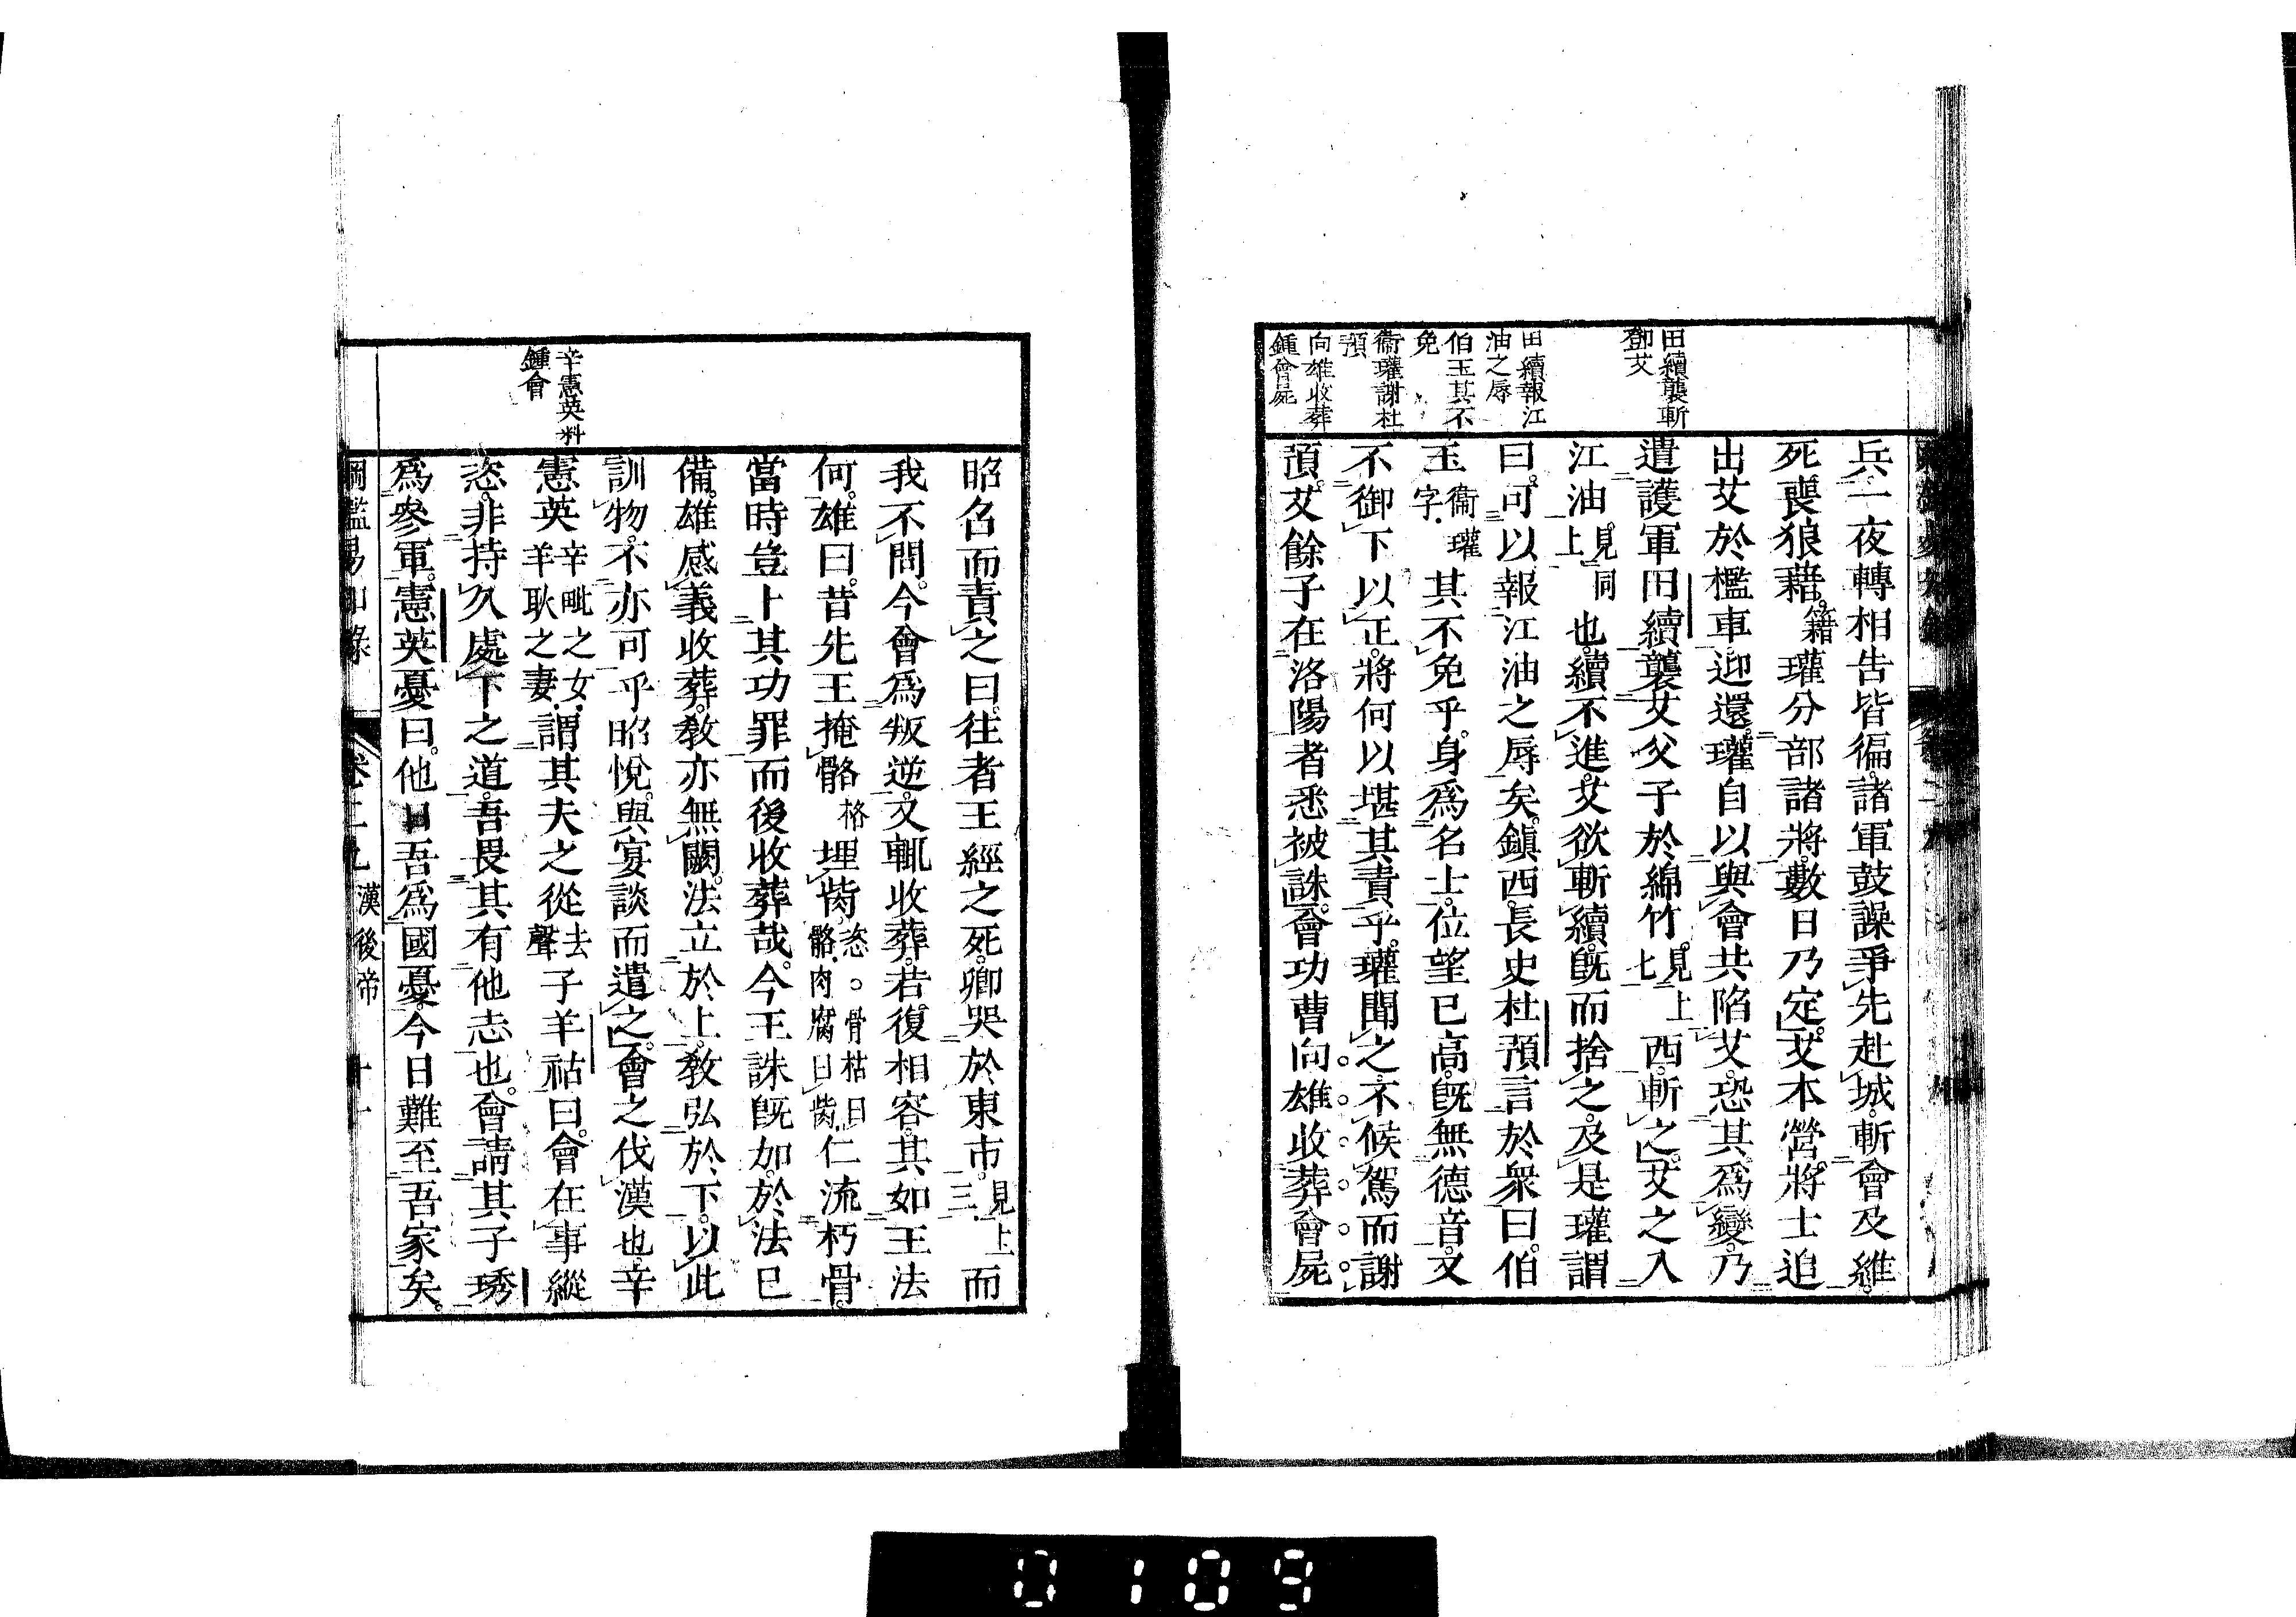 田續襲斬
鄧艾
田續報江
油之辱
伯玉其不
免
衞瓘謝杜
預
向雄收葬
鍾會屍
兵一夜轉相告皆徧諸軍鼓譟爭先赴城斬會及維
死喪狼藉籍瓘分部諸將數日乃定艾本營將士追
出艾於檻車迎還瓘自以與會共陷艾恐其爲變乃
遣護軍田續襲艾父子於綿竹見上七西斬之艾之入
江油見同上也續不進艾欲斬續旣而捨之及是瓘謂
曰可以報江油之辱矣鎭西長史杜預言於衆曰伯
玉衞瓘字其不免乎身爲名士位望已高旣無德音又
不御下以正將何以堪其責乎瓘聞之不候駕而謝
預艾餘子在洛陽者悉被誅會功曹向雄收葬會屍
辛憲英料
鍾會
昭召而責之曰往者王經之死卿哭於東市見上三而
我不問今會爲叛逆又輒收葬若復相容其如王法
何雄曰昔先王掩骼格埋胔恣骨枯曰骼肉腐曰胔仁流朽骨
當時豈卜其功罪而後收葬哉今王誅旣加於法已
備雄感義收葬敎亦無闕法立於上敎弘於下以此
訓物不亦可乎昭悅與宴談而遣之會之伐漢也辛
憲英辛毗之女羊耽之妻謂其夫之從去聲子羊祜曰會在事縱
恣非持久處下之道吾畏其有他志也會請其子琇
爲參軍憲英憂曰他日吾爲國憂今日難至吾家矣
綱鑑易知錄 卷二九 漢後帝 十一